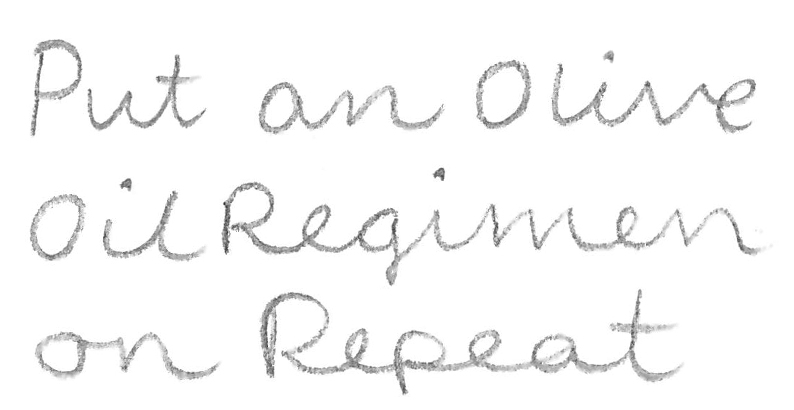 Put an Olive
Oil Regimen
on Repeat